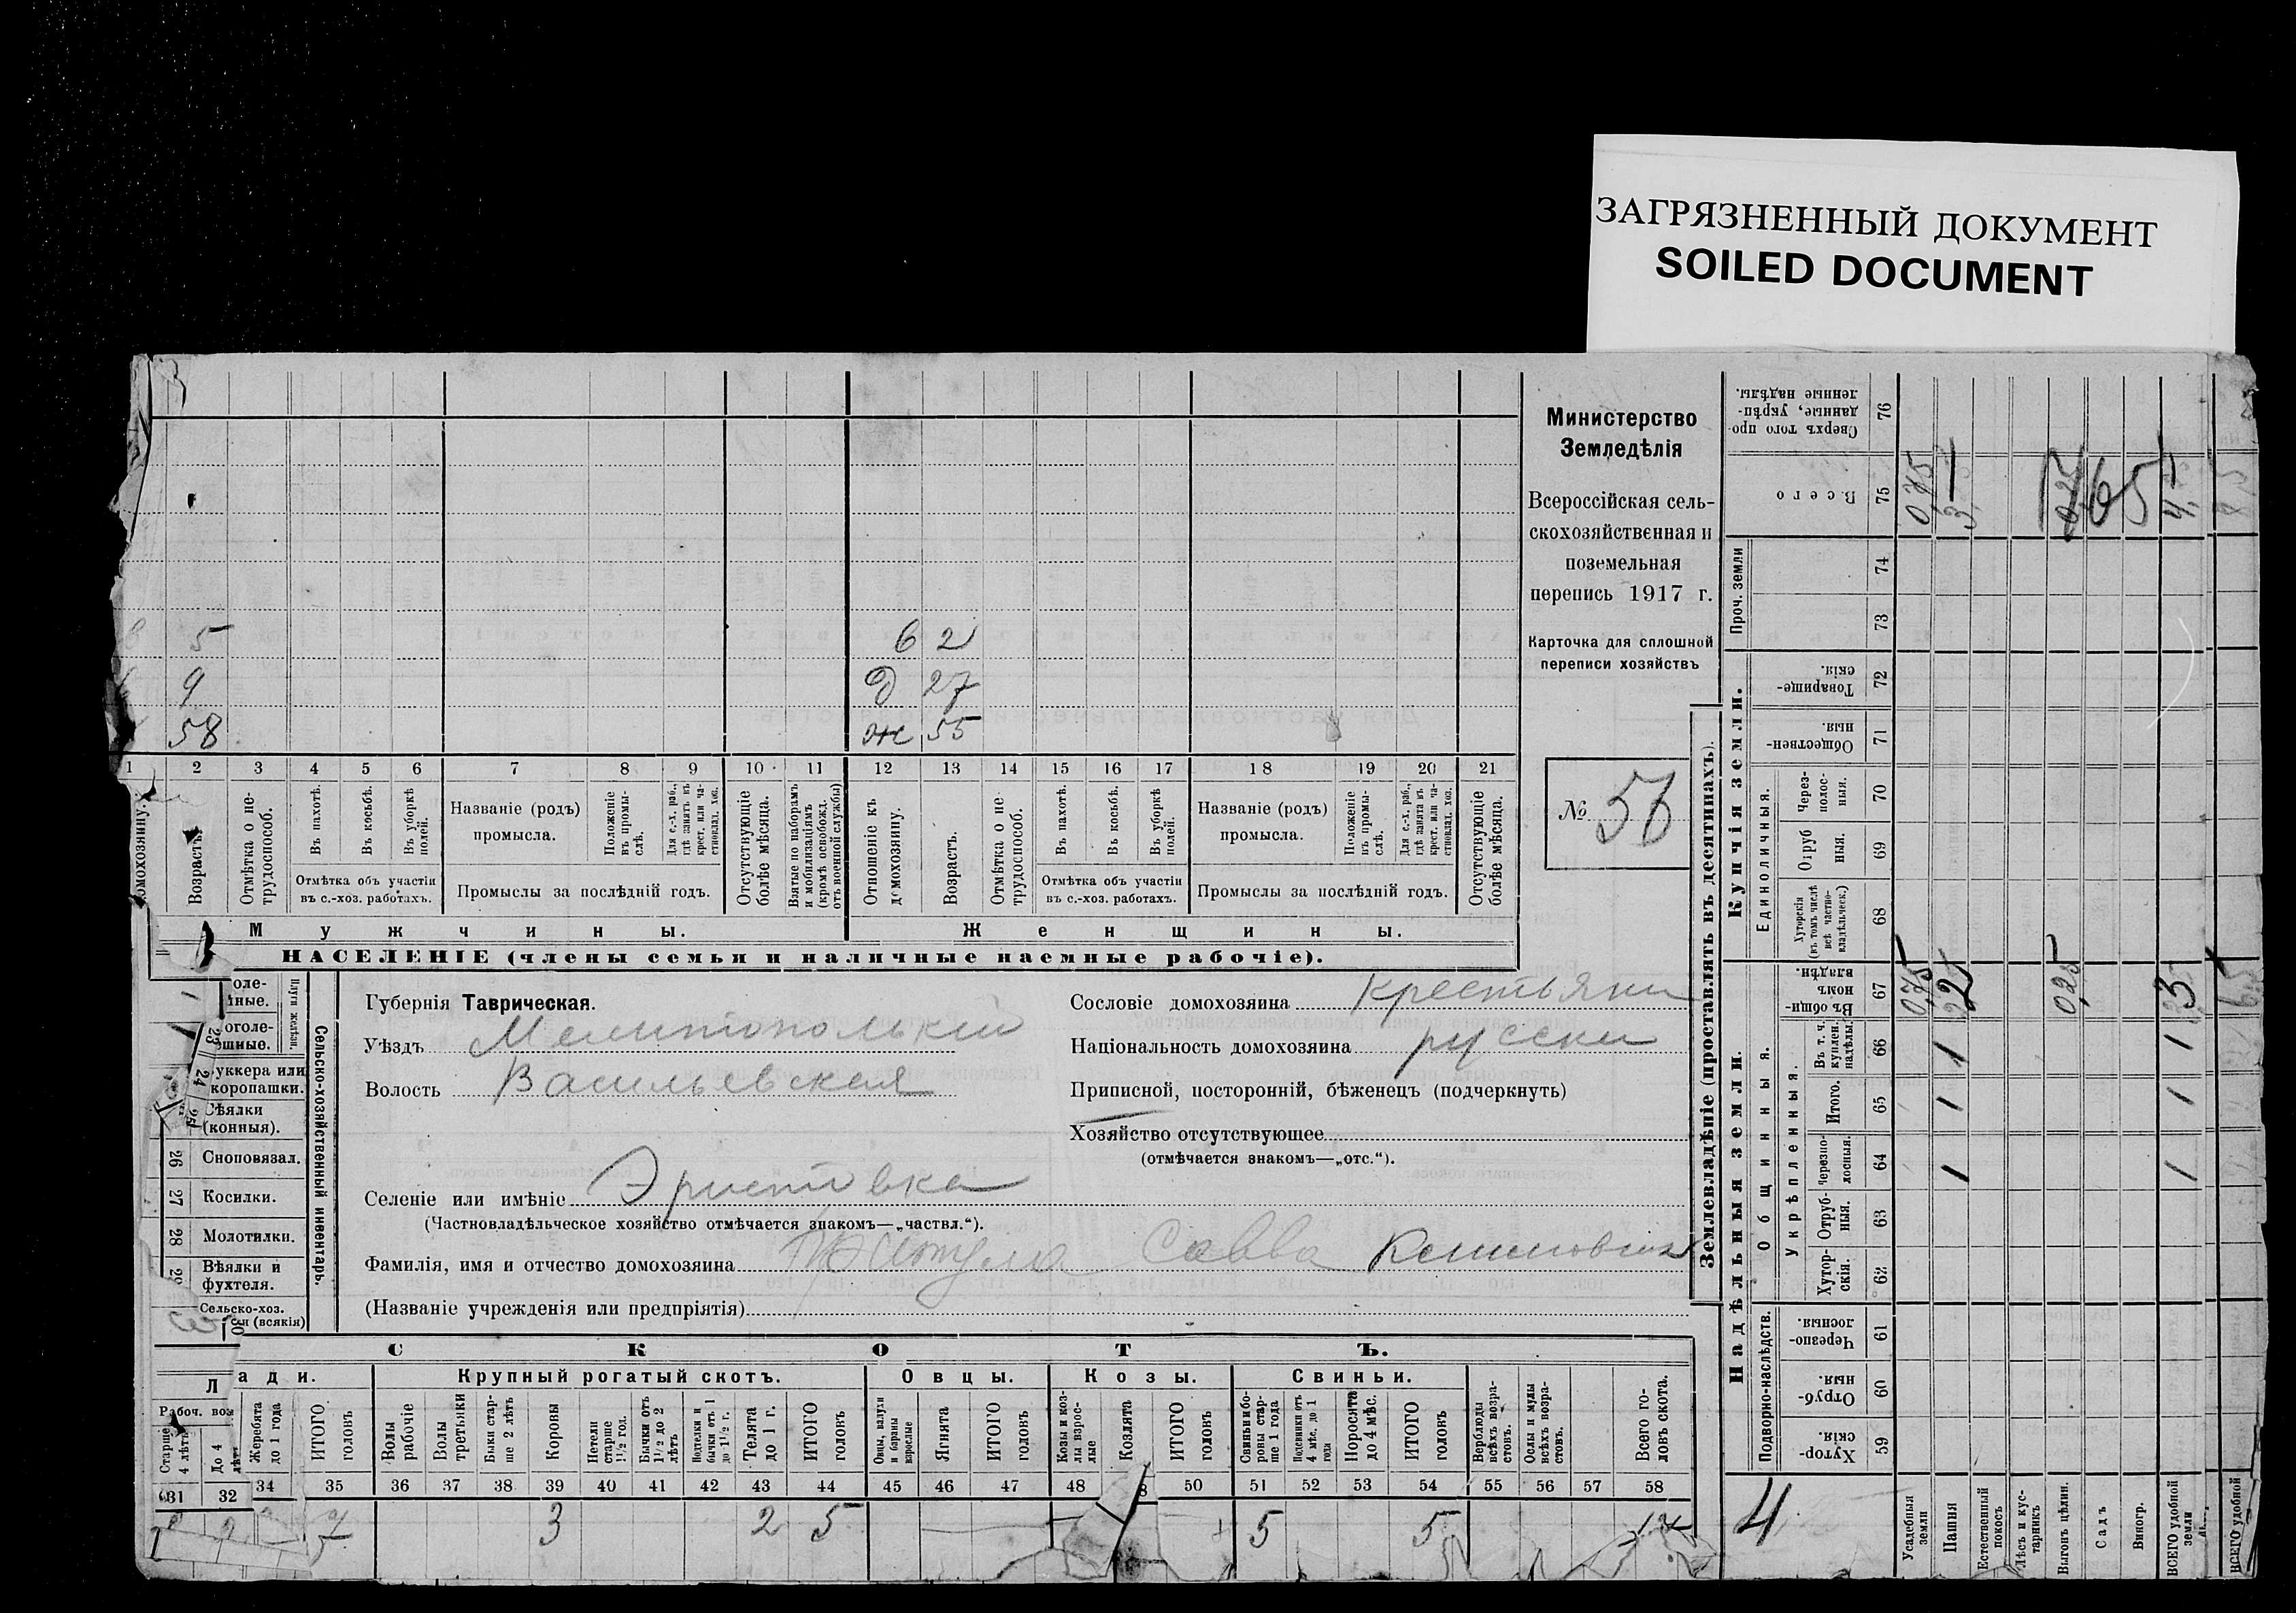 ЗАГРЯЗНЕННЫЙ ДОКУМЕНТ
SOILED DOCUMENT
Министерство
Земледѣлія
Всероссійская сель-
скохозяйственная и
поземельная
перепись 1917 г.
Карточка для сплошной
переписи хозяйствъ
№ 56
5 6 2
9 д 27
58 ж 55
1 2 3 4 5 6 7 8 9 10 11 12 13 14 15 16 17 18 19 20 21
домохозяину.
Возрастъ.
Отмѣтка о не-
трудоспособ.
Въ пахотѣ.
Въ косьбѣ.
Въ уборкѣ
полей.
Отмѣтка объ участіи
въ с.-хоз. работахъ.
Названіе (родъ)
промысла.
Положеніе
въ промы-
слѣ.
Для с.-х. раб.,
гдѣ занятъ въ
крест. или ча-
стновлад. хоз.
Промыслы за послѣдній годъ.
Отсутствующіе
болѣе мѣсяца.
Взятые по наборамъ
и мобилизаціямъ
(кромѣ освобожд.
отъ военной службы)
Отношеніе къ
домохозяину.
Возрастъ.
Отмѣтка о не-
трудоспособ.
Въ пахотѣ.
Въ косьбѣ.
Въ уборкѣ
полей.
Отмѣтка объ участіи
въ с.-хоз. работахъ.
Названіе (родъ)
промысла.
Положеніе
въ промы-
слѣ.
Для с.-х. раб.,
гдѣ занята въ
крест. или ча-
стновлад. хоз.
Промыслы за послѣдній годъ.
Отсутствующіе
болѣе мѣсяца.
Мужчины.
Женщины.
НАСЕЛЕНІЕ (члены семьи и наличные наемные рабочіе).
Губернія Таврическая.
Уѣздъ Мелитопольскій
Волость Васильевская
Селеніе или имѣніе Эристовка
(Частновладѣльческое хозяйство отмѣчается знакомъ—„частвл.“).
Фамилія, имя и отчество домохозяина Савва
(Названіе учрежденія или предпріятія)
Сословіе домохозяина крестьянин
Національность домохозяина русски
Приписной, посторонній, бѣженецъ (подчеркнуть)
Хозяйство отсутствующее
(отмѣчается знакомъ—„отс.“).
Сельско-хозяйственный инвентарь.
Плуги желѣзн.
24
25
Сѣялки
(конныя).
26 Сноповязал.
27 Косилки.
28 Молотилки.
29 Вѣялки и
фухтеля.
Сельско-хоз.
(всякія)
СКОТЪ.
Крупный рогатый скотъ.
Овцы.
Козы.
Свиньи.
Старше
4 лѣтъ
До 4
лѣтъ
Жеребята
до 1 года
ИТОГО
головъ
Волы
рабочіе
Волы
третьяки
Быки стар-
ше 2 лѣтъ
Коровы
Нетели
старше
1½ год.
Бычки отъ
1½ до 2
лѣтъ
Подтелки и
бычки отъ 1
до 1½ г.
Телята
до 1 г.
ИТОГО
головъ
Овцы, валухи
и бараны
взрослые
Ягнята
ИТОГО
головъ
Козы и коз-
лы взрос-
лые
Козлята
ИТОГО
головъ
Свиньи и бо-
ровы стар-
ше 1 года
Подсвинки отъ
4 мѣс. до 1
года
Поросята
до 4 мѣс.
ИТОГО
головъ
Верблюды
всѣхъ возра-
стовъ.
Ослы и мулы
всѣхъ возра-
стовъ.
Всего го-
ловъ скота.
31 32 34 35 36 37 38 39 40 41 42 43 44 45 46 47 48 50 51 52 53 54 55 56 57 58
2 7 3 2 5 5 5 17
Землевладѣніе (проставлять въ десятинахъ).
Надѣльныя земли.
Купчія земли.
Проч. земли
Подворно-наслѣдств.
Общинныя.
Укрѣпленныя.
Единоличныя.
Хутор-
скія.
59
Отруб-
ныя.
60
Черезпо-
лосныя.
61
Хутор-
скія.
62
Отруб-
ныя.
63
Черезпо-
лосныя.
64
Итого.
65
Въ т. ч.
куплен.
надѣлы.
66
Въ общи-
номъ
владѣн.
67
Хуторскія
(въ томъ числѣ
всѣ частно-
владѣльческ.)
68
Отруб
ныя.
69
Через-
полос-
ныя.
70
Обществен-
ныя
71
Товарище-
скія.
72
73
74
Всего
75
Сверхъ того про-
данные, укрѣп-
ленные надѣлы.
76
4
Усадебныя
земли
0,75 0,75
Пашня
1 1 1
Естественный
покосъ
Лѣсъ и кус-
тарникъ
Выгонъ цѣлин.
0,25
Садъ
Виногр.
ВСЕГО удобной
земли
1 1 1 3
ВСЕГО удобной